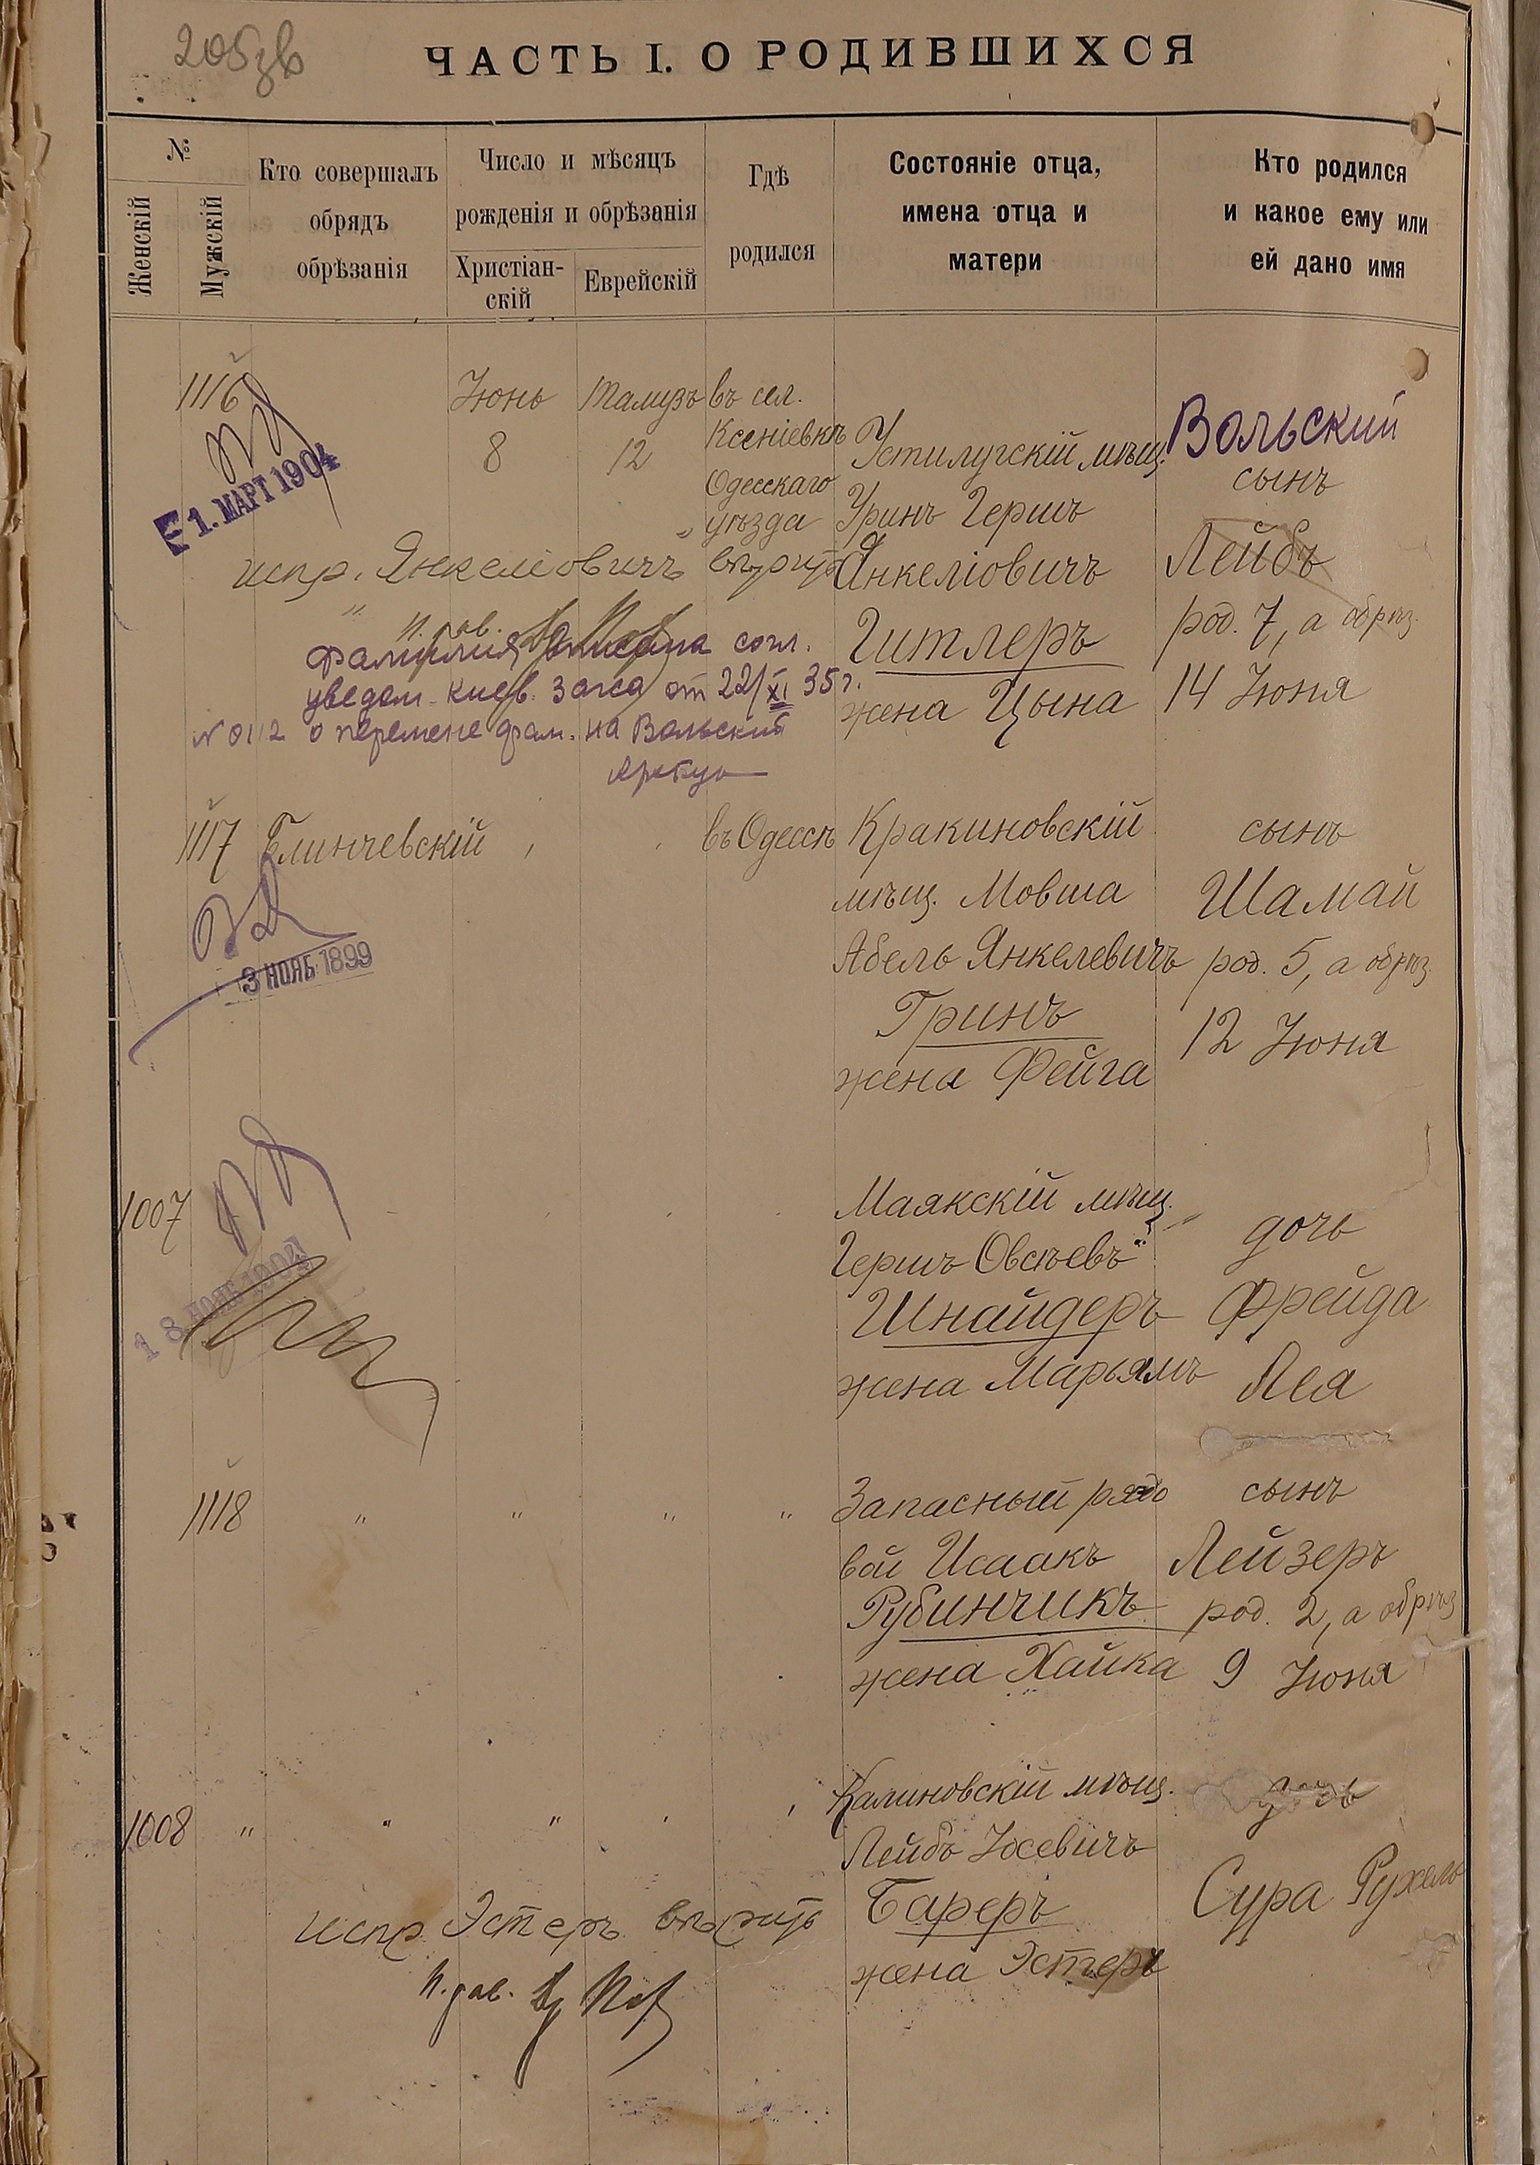 205зв
ЧАСТЬ I. О РОДИВШИХСЯ
№
Женскій
Мужскій
Кто совершалъ
обрядъ
обрѣзанія
Число и мѣсяцъ
рожденія и обрѣзанія
Христіан-
скій
Еврейскій
Гдѣ
родился
Состояніе отца,
имена отца и
матери
Кто родился
и какое ему или
ей дано имя
1116
1. МАРТ 1904
Іюнь
8
Тамузъ
12
въ сел.
Ксеніевкѣ
Одесскаго
уѣзда
Устилугскій мѣщ.
Уринъ Гершъ
Янкеліовичъ
Гитлеръ
жена Цына
Вольский
сынъ
Лейбъ
род. 7, а обрѣз.
14 Іюня
испр. „Янкеліовичъ" вѣрить
п. рав.
Фамилия вписана согл.
уведом. Киев. загса от 22/XI 35 г.
N 0112 о перемене фам. на Вольский
1117
3 НОЯБ 1899
Блинчевскій
въ Одессѣ
Кракиновскій
мѣщ. Мовша
Абель Янкелевичъ
Гринъ
жена Фейга
сынъ
Шамай
род. 5, а обрѣз.
12 Іюня
1007
18 НОЯБ 1904
Маякскій мѣщ.
Гершъ Овсѣевъ
Шнайдеръ
жена Марьямъ
дочь
Фрейда
Лея
1118
" " " "
Запасный рядо
вой Исаакъ
Рубинчикъ
жена Хайка
сынъ
Лейзеръ
род. 2, а обрѣз
9 Іюня
1008
" " "
Калиновскій мѣщ.
Лейбъ Іосевичъ
Бареръ
жена Эстеръ
дочь
Сура Рухель
испр. Эстеръ вѣрить
п. рав.